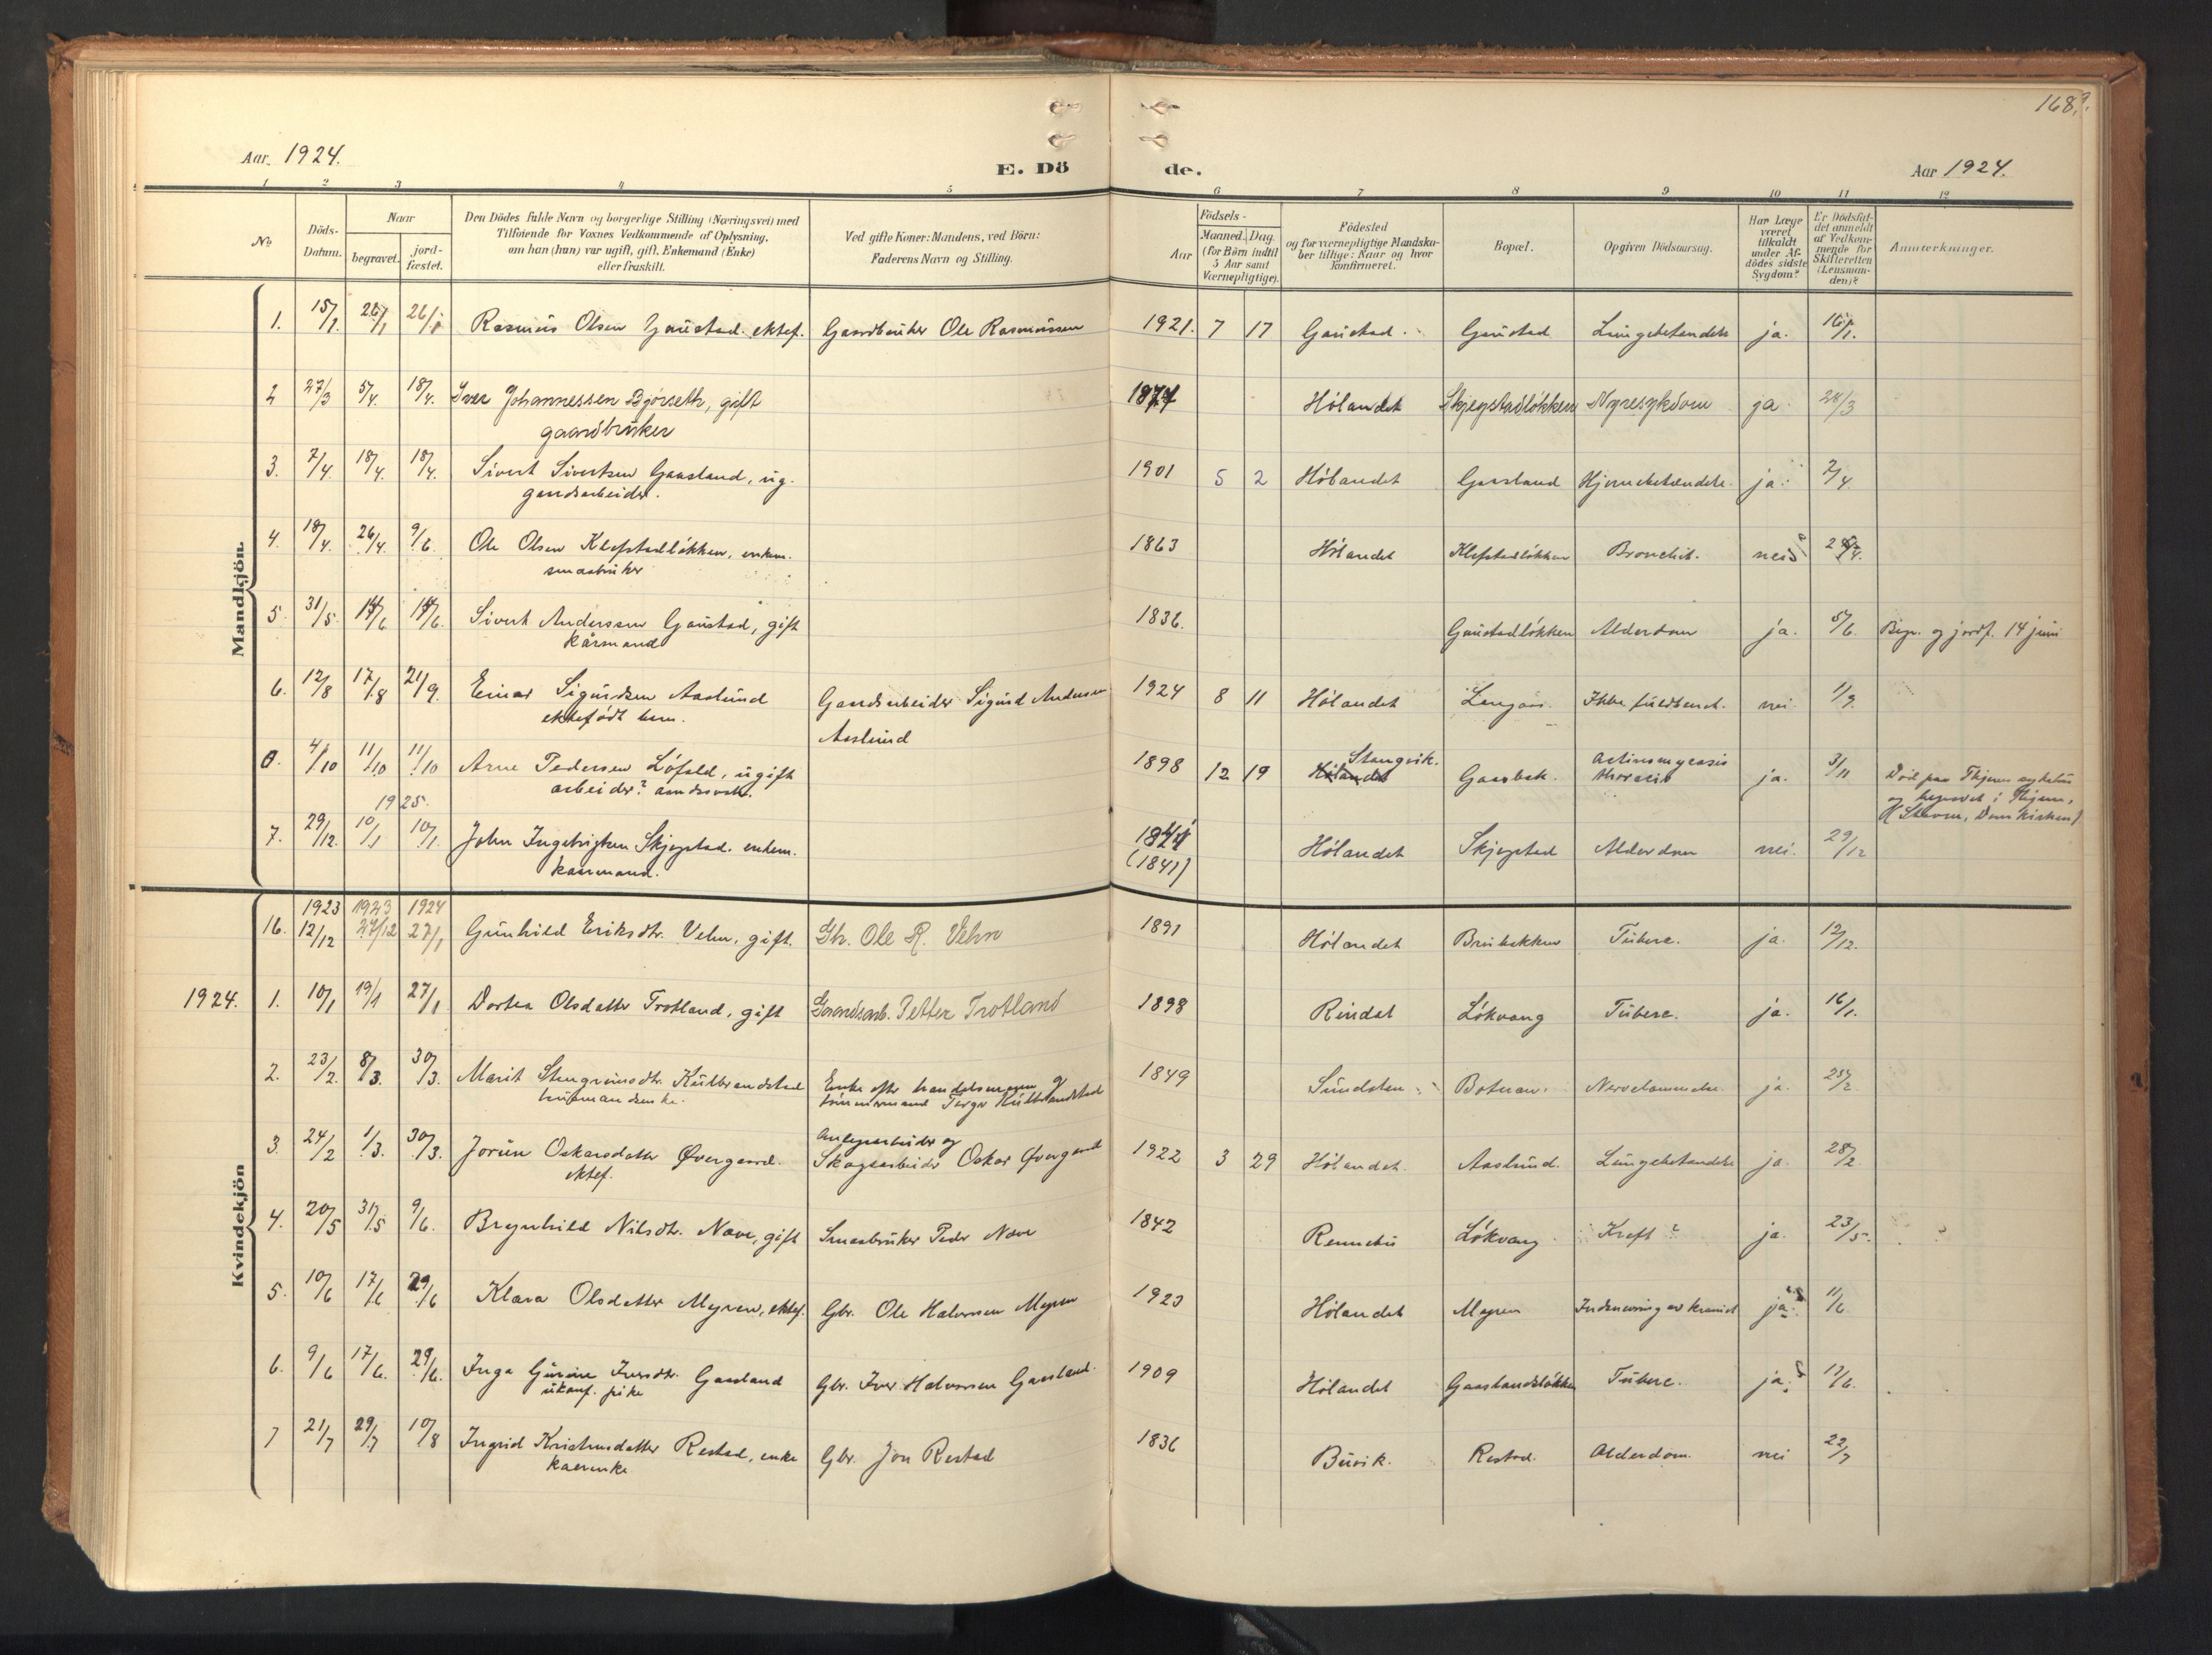 168
Aar 1924.
E. Dö de.
Aar 1924.
1 2 3 4 5 6 7 8 9 10 11 12
No
Döds-Datum.
Naar
begravet.
jord-fæstet.
Den Dödes fulde Navn og borgerlige Stilling (Næringsvei) med
Tilföiende for Voxnes Vedkommende af Oplysning,
om han (hun) var ugift, gift, Enkemand (Enke)
eller fraskilt.
Ved gifte Koner: Mandens, ved Börn:
Faderens Navn og Stilling.
Födsels-
Aar
Maaned. Dag.
(for Börn indtil
5 Aar samt
Værnepligtige).
Födested
og for værnepligtige Mandska-
ber tillige: Naar og hvor
konfirmeret.
Bopæl.
Opgiven Dödsaarsag.
Har Læge
været
tilkaldt
under Af-
dödes sidste
Sygdom?
Er Dödsfal-
det anmeldt
af Vedkom-
mende for
Skifteretten
(Lensman-
den)?
Anmerkninger.
Mandkjön.
1. 15/1 26/1 26/1 Rasmus Olsen Gaustad. ektef. Gaardbruker Ole Rasmussen 1921. 7 17 Gaustad. Gaustad Lungebetendelse ja. 16/1.
2 27/3 5/4. 18/4. Iver Johannessen Bjørseth, gift 1874 Hølandet Skjegstadløkken Nyresykdom ja. 28/3
gaardbruker
3. 7/4. 18/4. 18/4. Sivert Sivertsen Gaasland, ug. 1901 5 2 Hølandet Gaasland Hjernebetændelse. ja. 7/4.
gaardsarbeider.
4. 18/4. 26/4. 9/6. Ole Olsen Klefstadløkken, enkem. 1863 Hølandet Klefstadløkken Bronchit. nei
smaabruker
5. 31/5. 14/6 14/6. Sivert Anderssen Gaustad, gift 1836. Gaustadløkken Alderdom ja. 5/6. Begr. og jordf. 14 juni
kårmand
6. 12/8 17/8 21/9. Einar Sigurdsen Aaslund Gaardsarbeider Sigurd Andersen 1924 8 11 Hølandet Ikke fuldbaaret. nei 11/9.
ektefødt barn. Aaslund
0. 4/10 11/10 11/10 Arne Pedersen Löfald, ugift 1898 12 19 Hølandet Stangvik. Gaasbak. Actinomycosis ja. 3/11 Død paa Thjems sykehus
arbeider? thoracis og begravet i Thjem,
1925. (St. , Domkirken)
7. 29/12. 10/1 10/1. John Ingebrigtsen Skjegstad. enkem. 1841 Hølandet Skjegstad Alderdom nei. 29/12
kaarmand. (1841)
Kvindekjön
1923 1923 1924
16. 12/12 27/12 27/1 Gunhild Eriksdtr. Vehn, gift. Gb. Ole R. Vehn 1891 Hølandet Brubakken Tuberc. ja. 12/12.
1924. 1. 10/1 19/1 27/1 Dortea Olsdatter Trotland, gift Gaardsarb. Petter Trotland 1898 Rindal Løkvang Tuberc. ja. 16/1.
2. 23/2. 8/3. 30/3. Marit Stengrimsdtr. Kulbrandstad Enke efter handelsmann og 1849 Sundsten Botnan. Nervelammelse. ja. 25/2.
husmandsenke. tømmermand Kulbrandstad
3. 24/2 1/3. 30/3. Jorun Oskarsdatter Øvergaard. Anlegsarbeider og 1922 3 29 Hølandet. Aaslund. Lungebetændelse ja. 28/2.
ektef. Skogsarbeider Oskar Øvergaard
4. 20/5 31/5 9/6. Brynhild Nilsdtr. Nave, gift Smaabruker Peder Nave 1842 Rennebu Løkvang Kreft? ja. 23/5.
5. 10/6 17/6 29/6 Klara Olsdatter Myren, ektef. Gbr. Ole Halvorsen Myren 1923 Hølandet Myren ja. 11/6
6. 9/6 17/6. 29/6. Inga Gurine Iversdtr. Gaasland Gbr. Iver Halvorsen Gaasland. 1909 Hølandet Gaaslandsløkken Tuberc. ja. 17/6.
ukonf. pike
7 21/7 29/7 10/8 Ingrid Kristensdatter Restad, enke Gbr. Jon Restad 1836 Buvik. Restad. Alderdom. nei 22/7
kaarenke